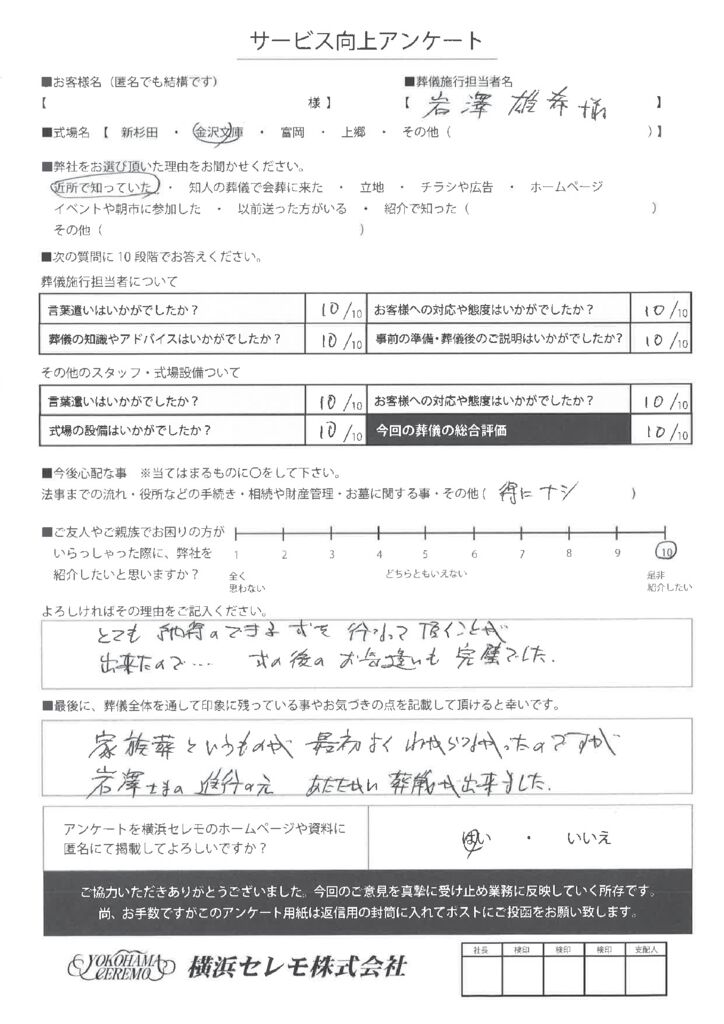 サービス向上アンケート
■お客様名（匿名でも結構です）
【 様】
■葬儀施行担当者名
【 岩澤 雄希 様 】
■式場名 【 新杉田 ・ 金沢文庫 ・ 富岡 ・ 上郷 ・ その他（ ）】
■弊社をお選び頂いた理由をお聞かせください。
近所で知っていた ・ 知人の葬儀で会葬に来た ・ 立地 ・ チラシや広告 ・ ホームページ
イベントや朝市に参加した ・ 以前送った方がいる ・ 紹介で知った（ ）
その他（ ）
■次の質問に10段階でお答えください。
葬儀施行担当者について
言葉遣いはいかがでしたか？ 10/10 お客様への対応や態度はいかがでしたか？ 10/10
葬儀の知識やアドバイスはいかがでしたか？ 10/10 事前の準備・葬儀後のご説明はいかがでしたか？ 10/10
その他のスタッフ・式場設備ついて
言葉遣いはいかがでしたか？ 10/10 お客様への対応や態度はいかがでしたか？ 10/10
式場の設備はいかがでしたか？ 10/10 今回の葬儀の総合評価 10/10
■今後心配な事 ※当てはまるものに○をして下さい。
法事までの流れ・役所などの手続き・相続や財産管理・お墓に関する事・その他（ 得にナシ ）
■ご友人やご親族でお困りの方が
いらっしゃった際に、弊社を
紹介したいと思いますか？
1 2 3 4 5 6 7 8 9 10
全く
思わない
どちらともいえない
是非
紹介したい
よろしければその理由をご記入ください。
とても 納得のできる 式を 行なって 頂くことが
出来たので… 式の後の お気遣いも 完璧でした.
■最後に、葬儀全体を通して印象に残っている事やお気づきの点を記載して頂けると幸いです。
家族葬というものが 最初よくわからなかったのですが
岩澤さまの 進行の元 あたたかい 葬儀が出来ました.
アンケートを横浜セレモのホームページや資料に
匿名にて掲載してよろしいですか？
はい ・ いいえ
ご協力いただきありがとうございました。今回のご意見を真摯に受け止め業務に反映していく所存です。
尚、お手数ですがこのアンケート用紙は返信用の封筒に入れてポストにご投函をお願い致します。
YOKOHAMA
CEREMO
横浜セレモ株式会社
社長 検印 検印 検印 支配人